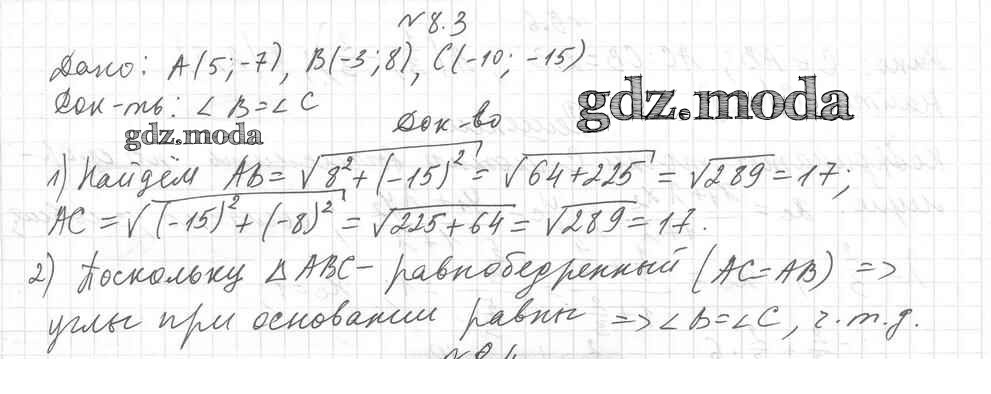 №8.3
Дано: A(5;-7), B(-3;8), C(-10; -15)
Док-ть: ∠B=∠C
gdz.moda
Док-во
gdz.moda
1) Найдём AB = √(8² + (-15)²) = √(64+225) = √289 = 17;
AC = √((-15)² + (-8)²) = √(225+64) = √289 = 17.
2) Поскольку ΔABC – равнобедренный (AC=AB) =>
углы при основании равны => ∠B=∠C, ч.т.д.